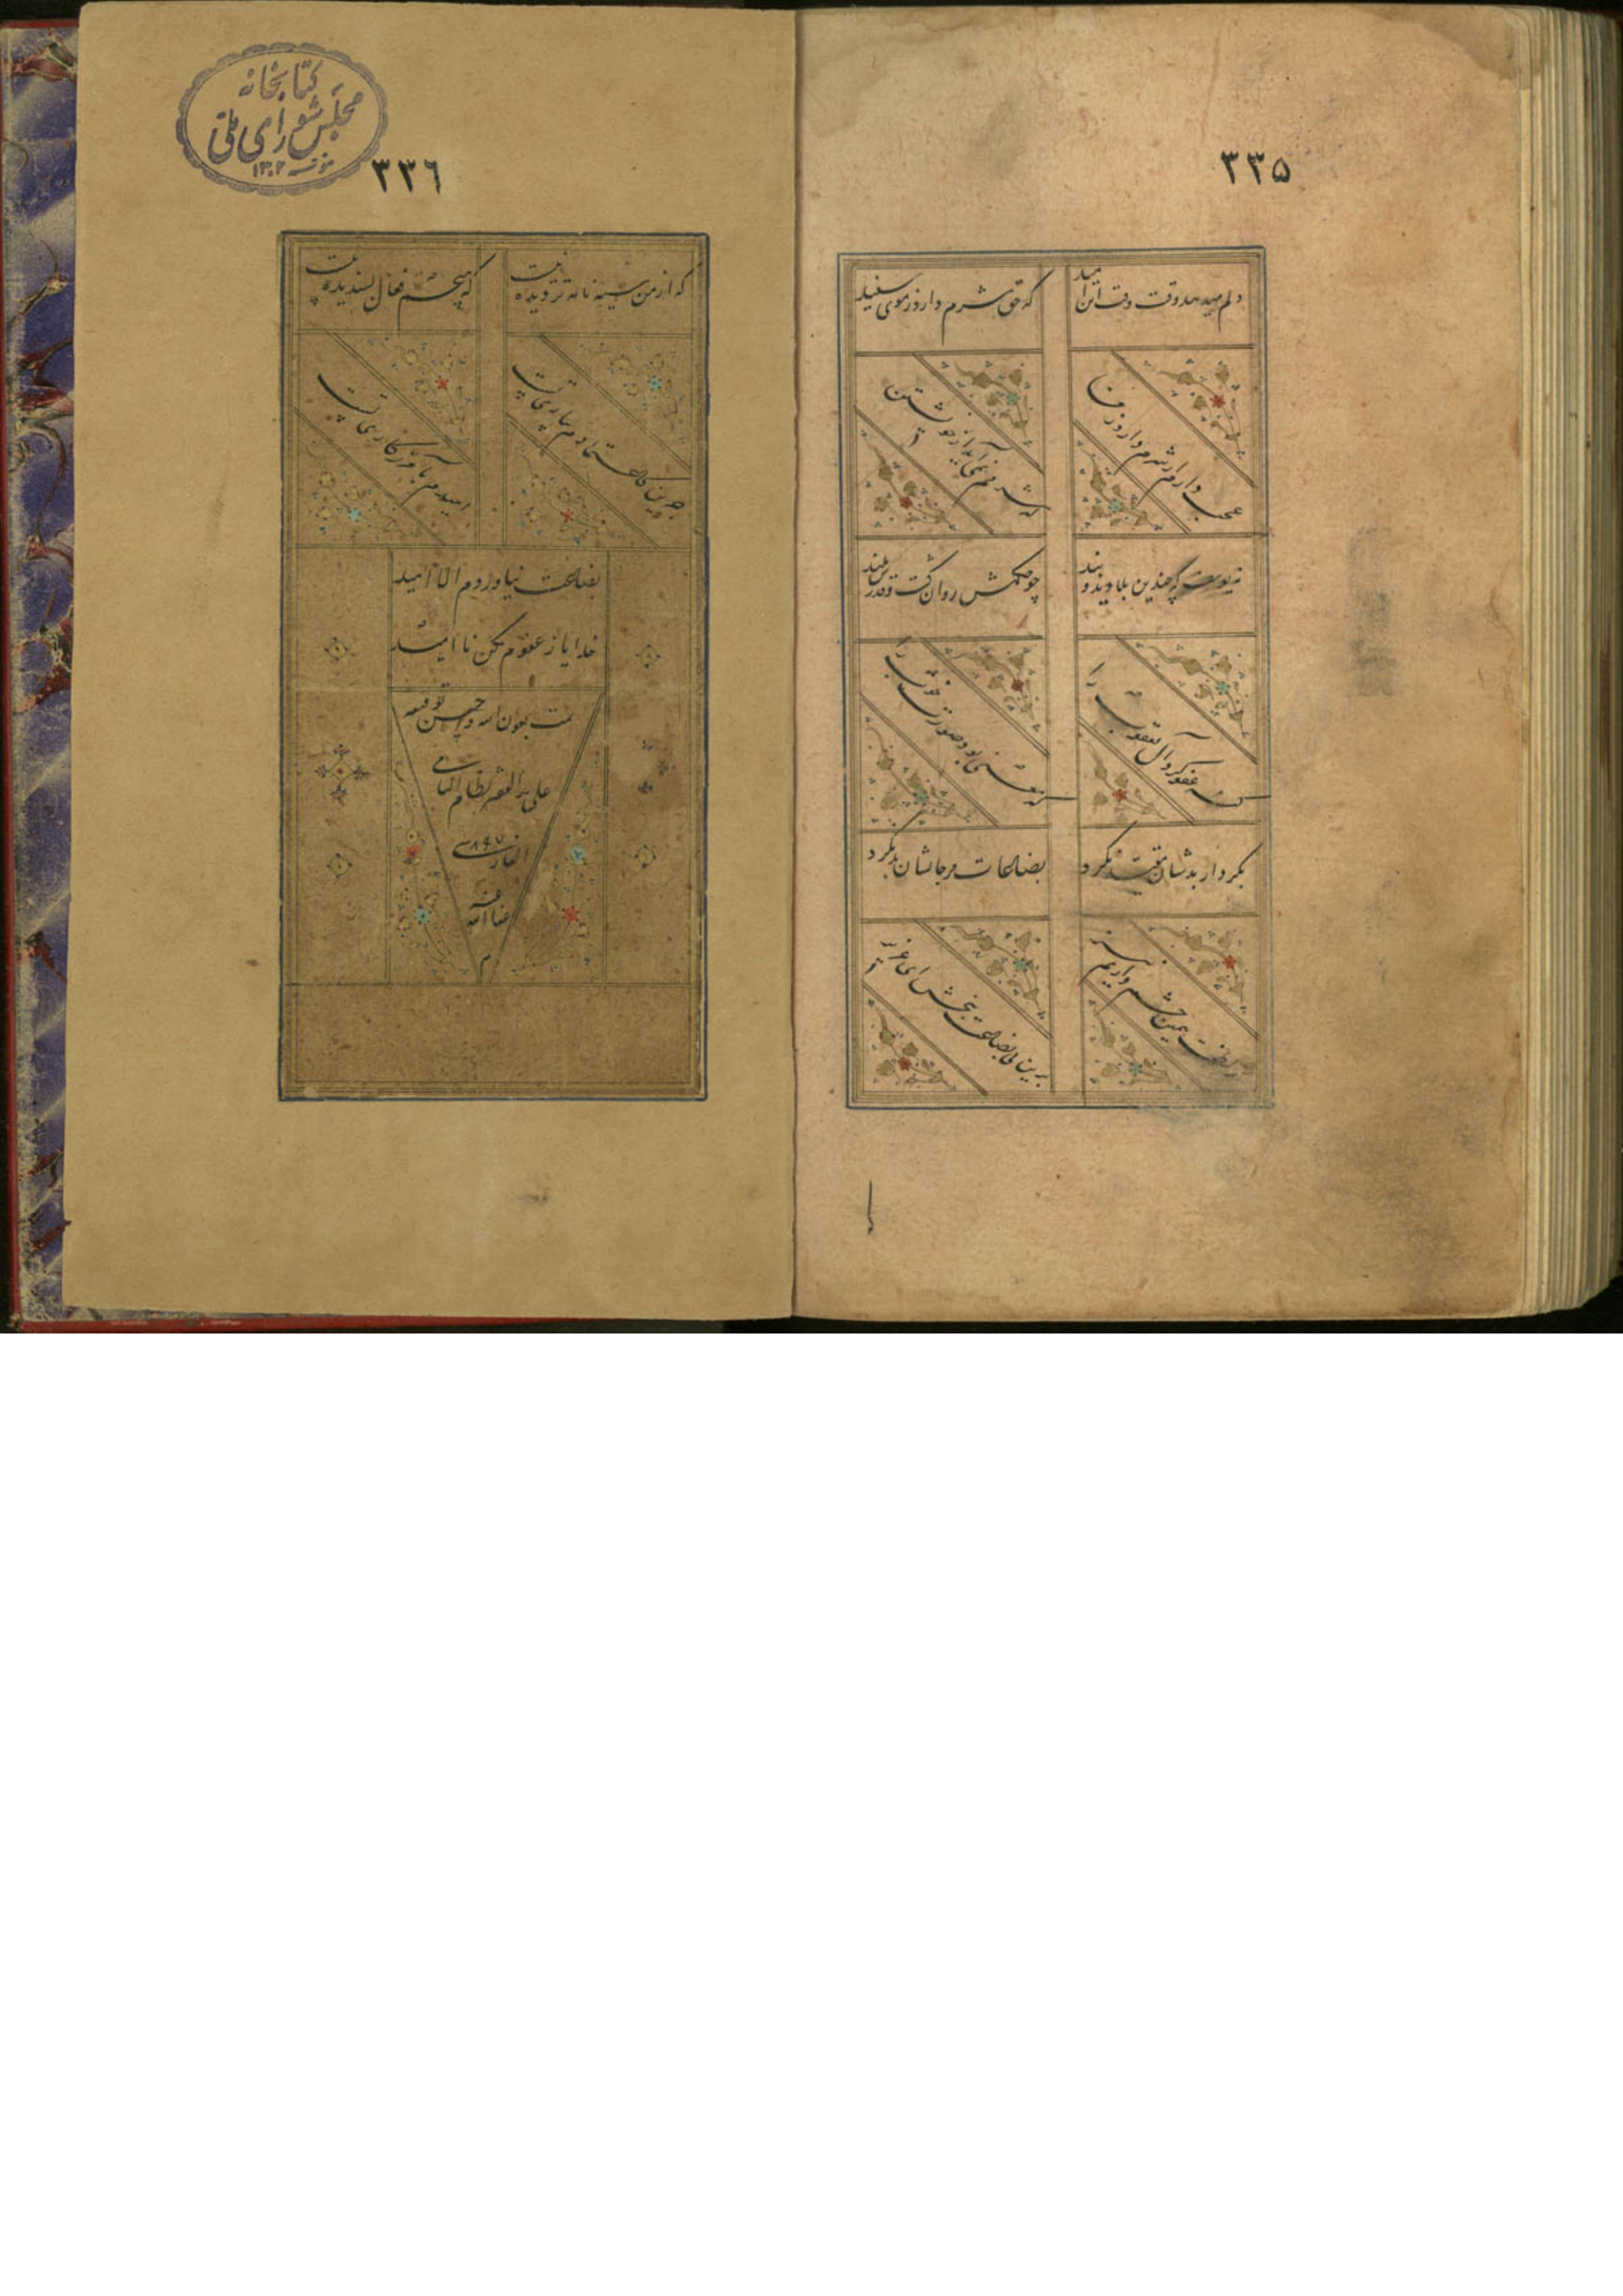 ۳۳۵
دلم میدهد وقت وقت این امید
که حق شرم دارد ز موی سفید
عجب دارم ار شرم دارد ز من
که شرمم نمی‌آید از خویشتن
نه یوسف که چندین بلا دید و بند
چو حکمش روان گشت و قدرش بلند
گنه عفو کرد آل یعقوب را
که معنی بود صورت خوب را
بکردار بدشان مقید نکرد
بضاعات مزجاتشان رد نکرد
ز لطفت همین چشم داریم نیز
برین بی بضاعت ببخش ای عزیز
۳۳۶
کتابخانه
مجلس شورای ملی
۱۳۰۲
که از من سیه نامه تر دیده نیست
که هیچم فعال پسندیده نیست
جز این کاعتمادم بیاری تست
امیدم بآمرزگاری تست
بضاعت نیاوردم الا امید
خدایا ز عفوم مکن نا امید
تمت بعون الله و حسن توفیقه
علی ید الفقیر نظام
۸۹۷
عفا الله عنه
م